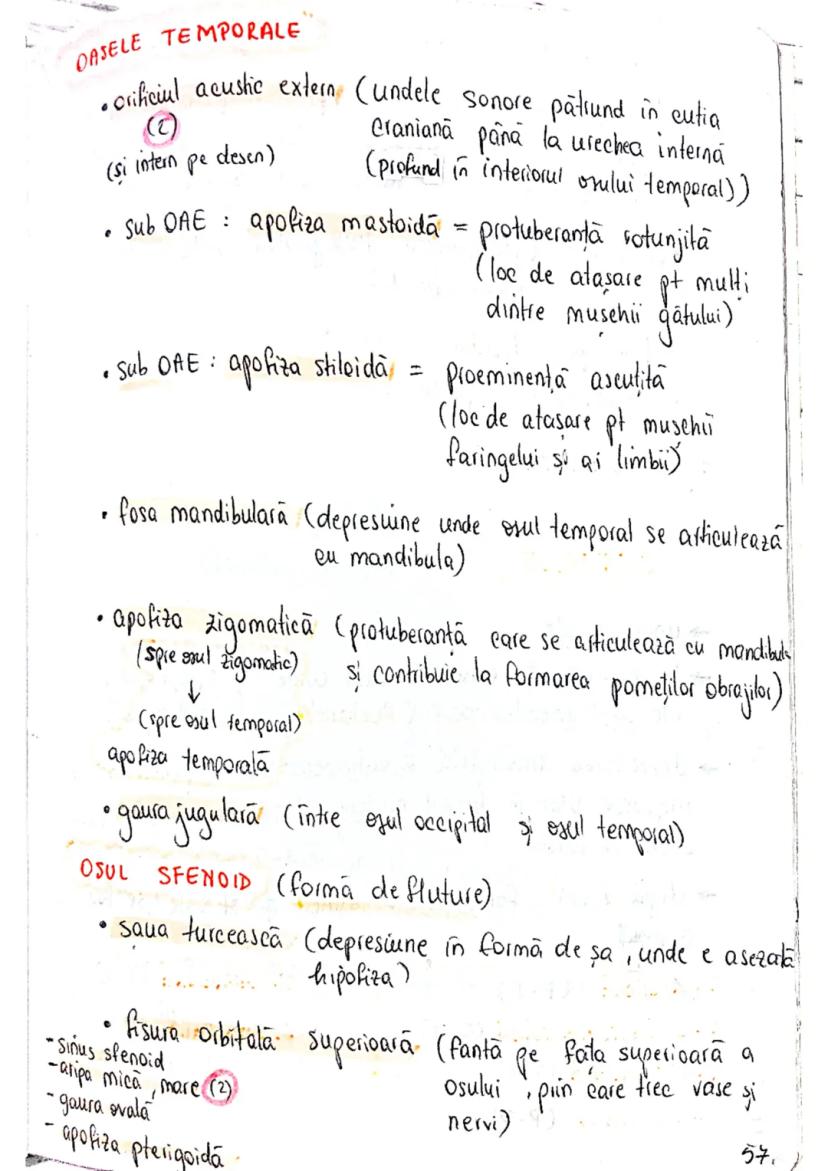 OASELE TEMPORALE
• orificiul acustic extern (undele sonore pătrund în cutia
(2) craniană până la urechea internă
(și intern pe desen) (profund în interiorul osului temporal))
• sub OAE : apofiza mastoidă = protuberanță rotunjită
(loc de atașare pt mulți
dintre mușchii gâtului)
• sub OAE : apofiza stiloidă = proeminență ascuțită
(loc de atașare pt mușchii
faringelui și ai limbii)
• fosa mandibulară (depresiune unde osul temporal se articulează
cu mandibula)
• apofiza zigomatică (protuberanță care se articulează cu mandibula
(spre osul zigomatic) și contribuie la formarea pomeților obrajilor)
↓
(spre osul temporal)
apofiza temporală
• gaura jugulară (între osul occipital și osul temporal)
OSUL SFENOID (formă de fluture)
• șaua turcească (depresiune în formă de șa, unde e asezată
hipofiza)
• fisura orbitală superioară (fantă pe fața superioară a
osului, prin care trec vase și
nervi)
- sinus sfenoid
- aripa mică, mare (2)
- gaura ovală
- apofiza pterigoidă
57.